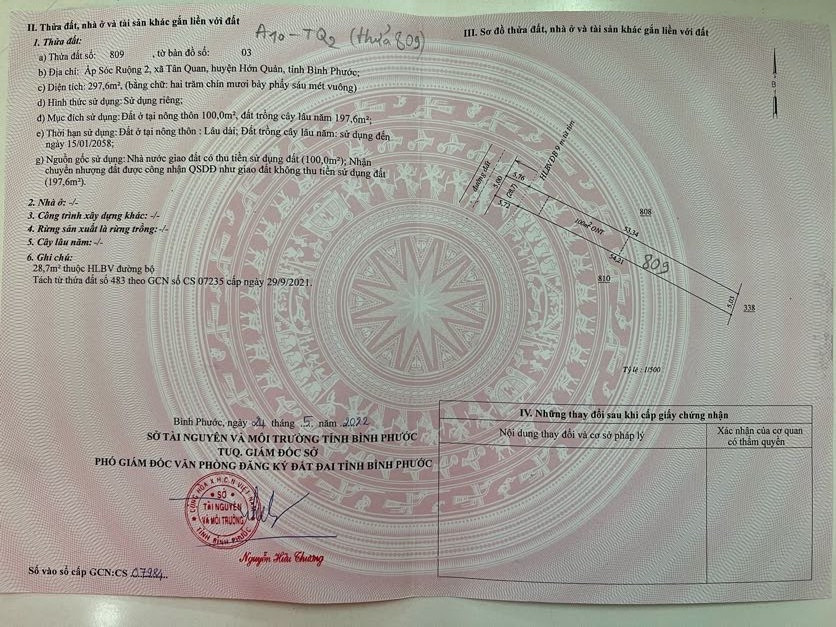 II. Thửa đất, nhà ở và tài sản khác gắn liền với đất
A10-TQ2 (thửa 809)
1. Thửa đất:
a) Thửa đất số: 809 , tờ bản đồ số: 03
b) Địa chỉ: Ấp Sóc Ruộng 2, xã Tân Quan, huyện Hớn Quản, tỉnh Bình Phước;
c) Diện tích: 297,6m², (bằng chữ: hai trăm chín mươi bảy phẩy sáu mét vuông)
d) Hình thức sử dụng: Sử dụng riêng;
đ) Mục đích sử dụng: Đất ở tại nông thôn 100,0m², đất trồng cây lâu năm 197,6m²;
e) Thời hạn sử dụng: Đất ở tại nông thôn : Lâu dài; Đất trồng cây lâu năm: sử dụng đến
ngày 15/01/2058;
g) Nguồn gốc sử dụng: Nhà nước giao đất có thu tiền sử dụng đất (100,0m²); Nhận
chuyển nhượng đất được công nhận QSDĐ như giao đất không thu tiền sử dụng đất
(197,6m²).
2. Nhà ở: -/-
3. Công trình xây dựng khác: -/-
4. Rừng sản xuất là rừng trồng: -/-
5. Cây lâu năm: -/-
6. Ghi chú:
28,7m² thuộc HLBV đường bộ
Tách từ thửa đất số 483 theo GCN số CS 07235 cấp ngày 29/9/2021.
Bình Phước, ngày 04 tháng 5 năm 2022
SỞ TÀI NGUYÊN VÀ MÔI TRƯỜNG TỈNH BÌNH PHƯỚC
TUQ. GIÁM ĐỐC SỞ
PHÓ GIÁM ĐỐC VĂN PHÒNG ĐĂNG KÝ ĐẤT ĐAI TỈNH BÌNH PHƯỚC
CỘNG HÒA X.H.C.N VIỆT NAM
SỞ
TÀI NGUYÊN
VÀ MÔI TRƯỜNG
TỈNH BÌNH PHƯỚC
Nguyễn Hữu Chương
Số vào sổ cấp GCN:CS 07984
III. Sơ đồ thửa đất, nhà ở và tài sản khác gắn liền với đất
B
HLBVĐB 9 m từ tim
đường đất
5,00
5,76
(28,7)
5,72
808
100m² ONT
53,34
54,21
809
810
5,03
338
Tỷ lệ : 1/500
IV. Những thay đổi sau khi cấp giấy chứng nhận
Nội dung thay đổi và cơ sở pháp lý
Xác nhận của cơ quan
có thẩm quyền